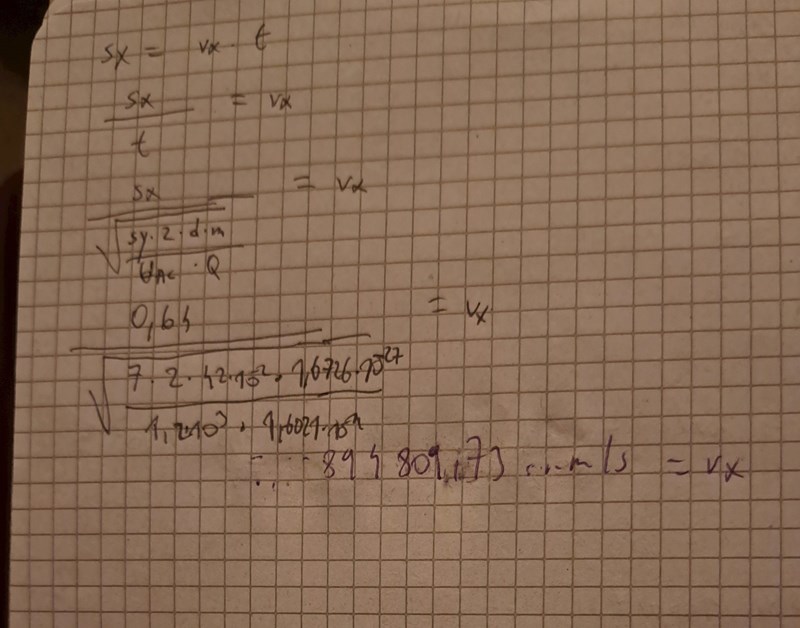 sx = vx · t
sx / t = vx
sx / √(sy · 2 · d · m / U_AC · Q) = vx
0,64 / √(7 · 2 · 42·10² · 1,6726·10²⁷ / 1,2·10³ · 1,6021·10) = vx
894 809,73 m/s = vx